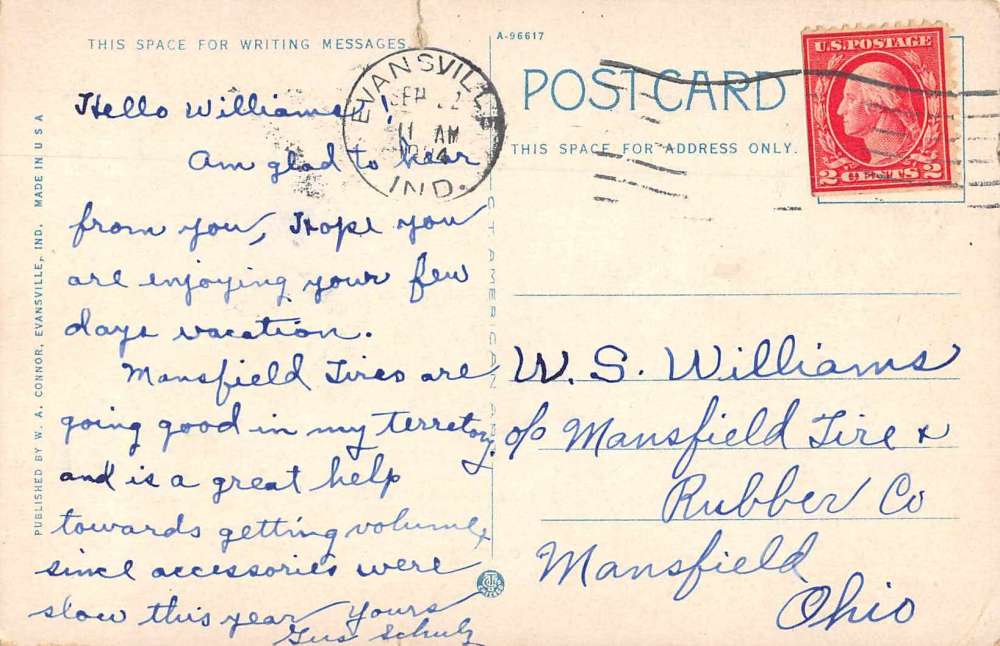 THIS SPACE FOR WRITING MESSAGES
A-96617
POST CARD
THIS SPACE FOR ADDRESS ONLY.
U.S. POSTAGE
2 CENTS 2
EVANSVILLE
11 AM
IND.
Hello Williams!
Am glad to hear
from you, Hope you
are enjoying your few
days vacation.
Mansfield Tires are
going good in my terretory.
and is a great help
towards getting volume,
since accessories were
slow this year Yours
Gus Schulz
W. S. Williams
c/o Mansfield Tire &
Rubber Co
Mansfield
Ohio
PUBLISHED BY W. A. CONNOR, EVANSVILLE, IND. MADE IN U S A
C T AMERICAN ART